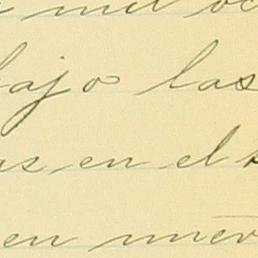 mil oc
bajo las
as en el
en nuev